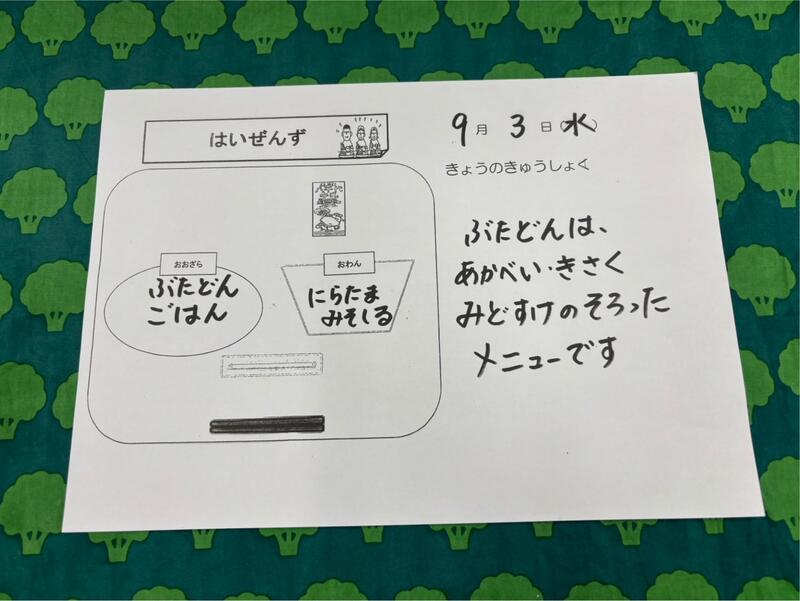 はいぜんず
おおざら
ぶたどん
ごはん
おわん
にらたま
みそしる
9月3日(水)
きょうのきゅうしょく
ぶたどんは、
あかべい・きさく
みどすけのそろった
メニューです